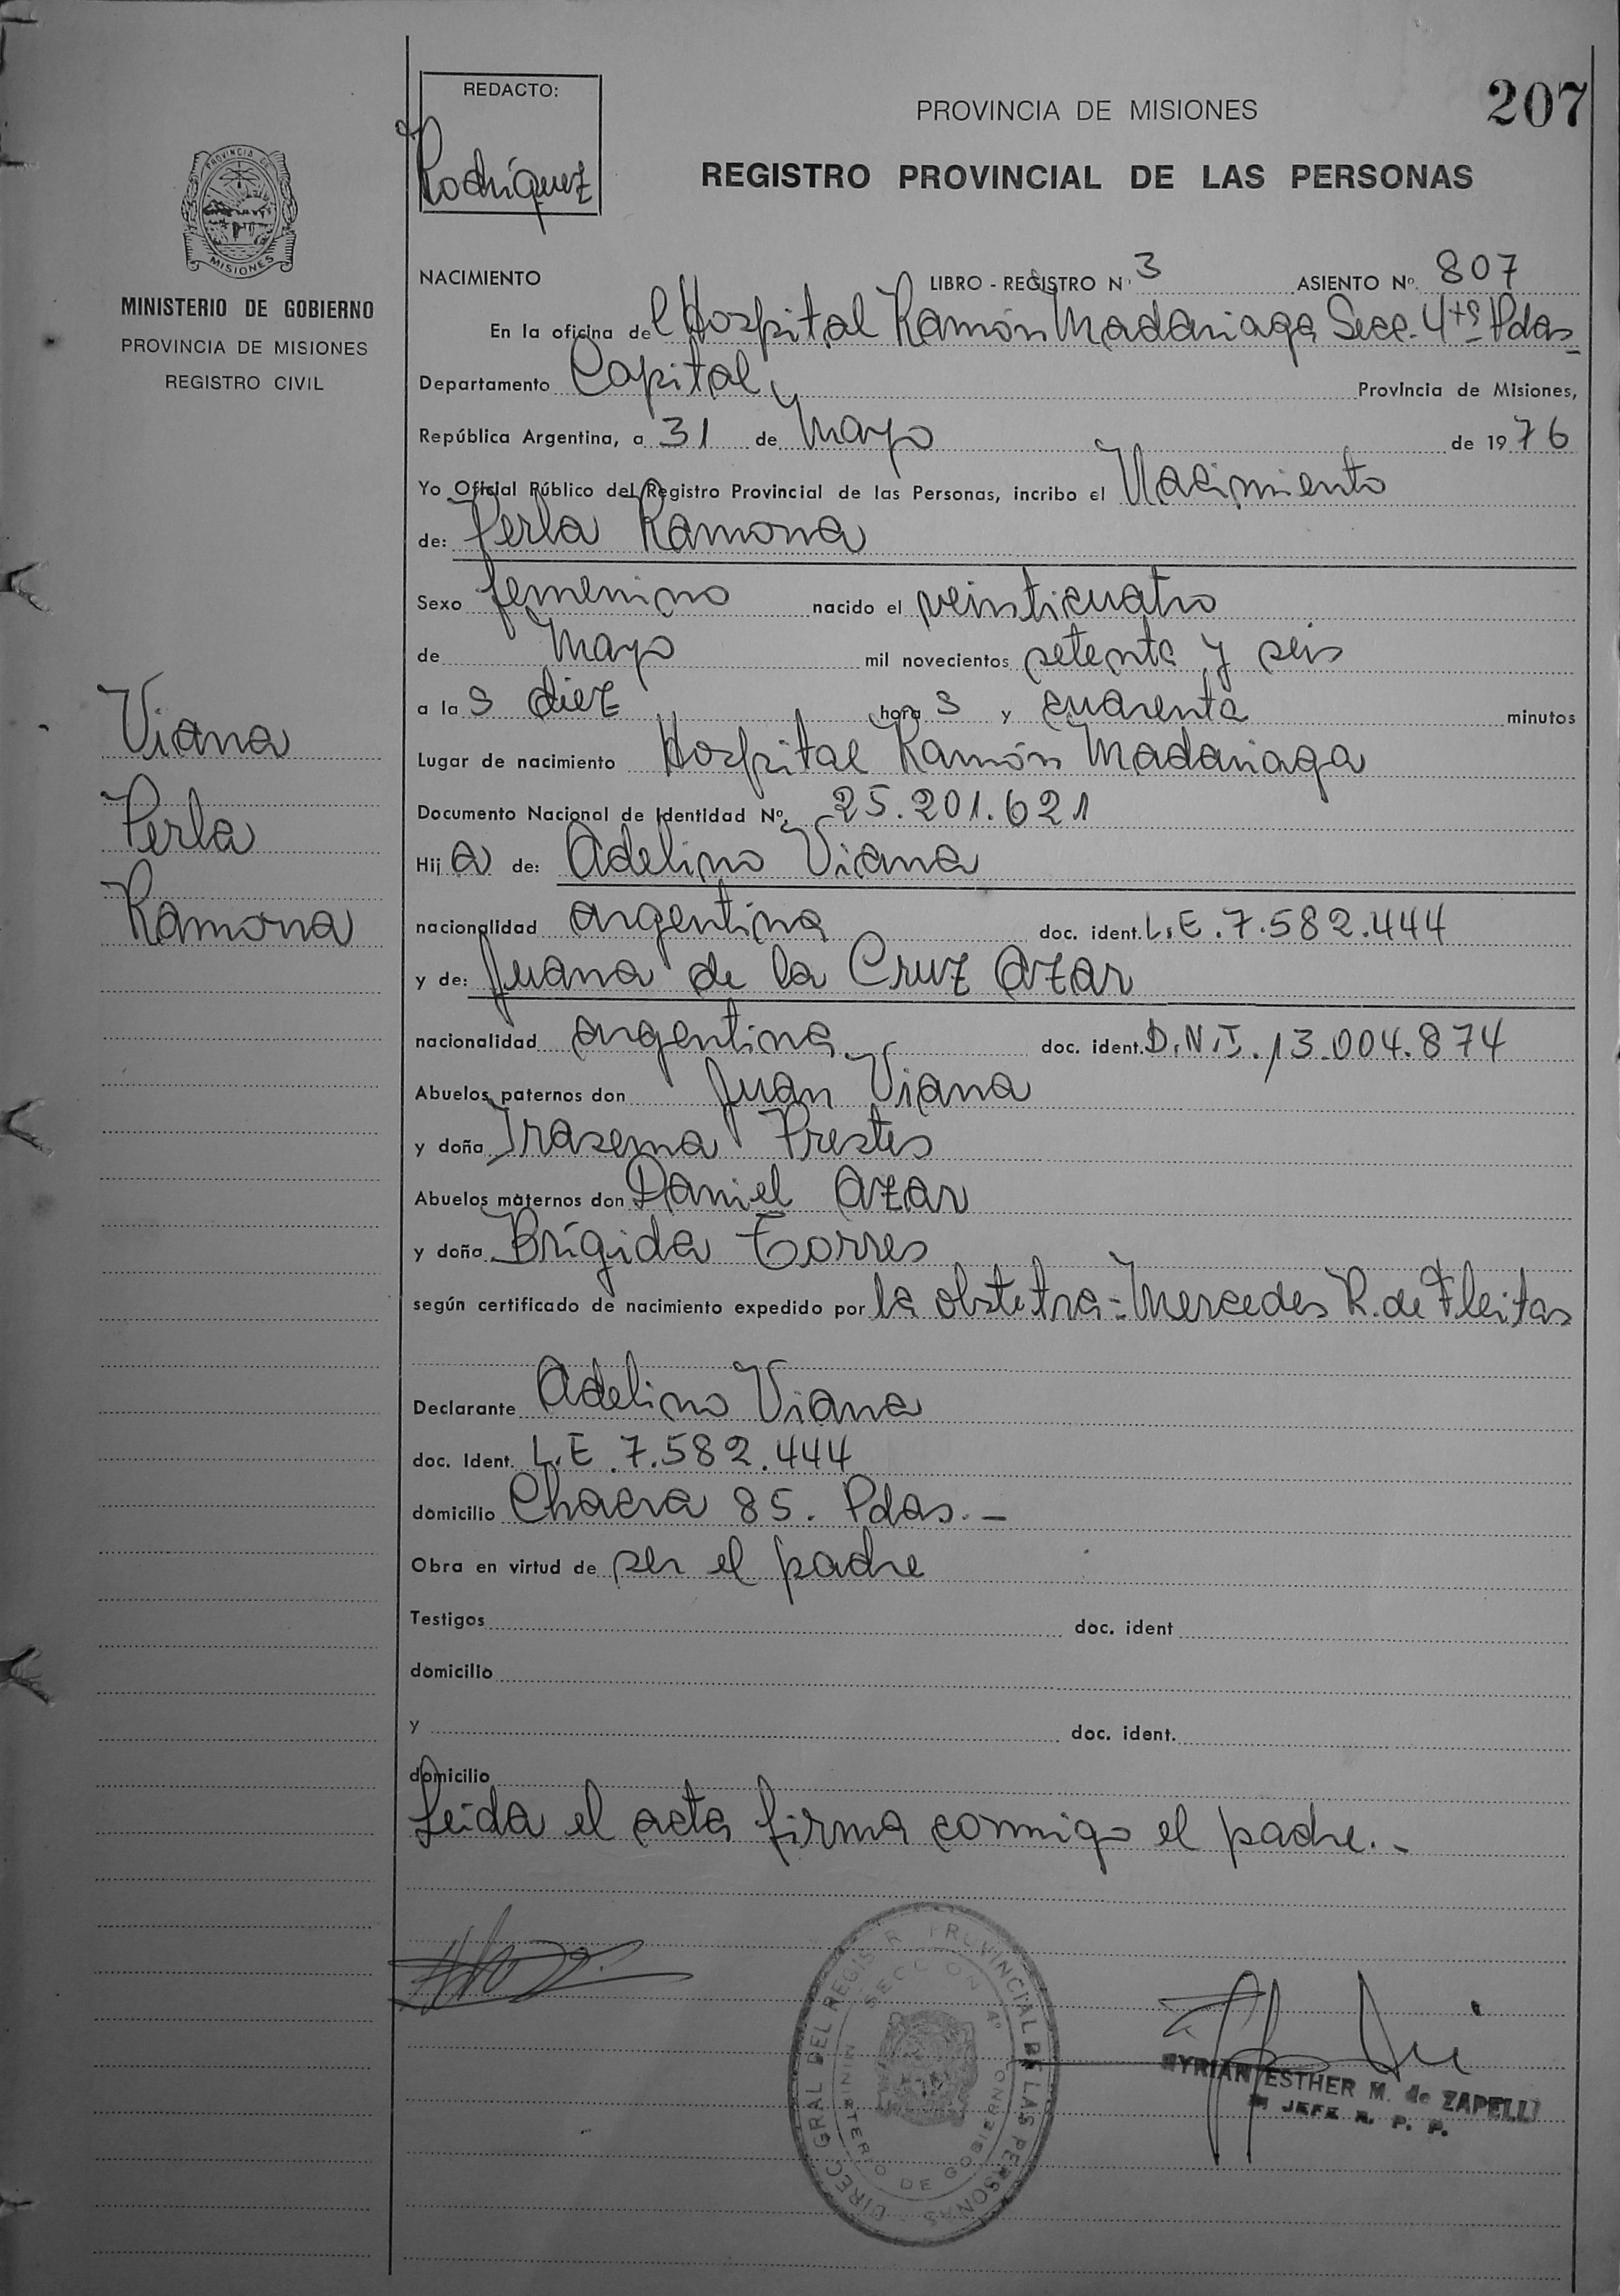 REDACTO:
Rodríguez
PROVINCIA DE MISIONES
207
REGISTRO PROVINCIAL DE LAS PERSONAS
PROVINCIA DE
MISIONES
MINISTERIO DE GOBIERNO
PROVINCIA DE MISIONES
REGISTRO CIVIL
NACIMIENTO LIBRO - REGISTRO Nº 3 ASIENTO Nº. 807
En la oficina del Hospital Ramón Madariaga Secc. 4ta Pdas
Departamento Capital, Provincia de Misiones,
República Argentina, a 31 de Mayo de 1976
Yo Oficial Público del Registro Provincial de las Personas, incribo el Nacimiento
de: Perla Ramona
Sexo femenino nacido el veinticuatro
de Mayo mil novecientos setenta y seis
a las diez horas y cuarenta minutos
Lugar de nacimiento Hospital Ramón Madariaga
Documento Nacional de Identidad Nº. 25.201.621
Hija de: Adelino Viana
nacionalidad argentina doc. ident. L.E. 7.582.444
y de: Juana de la Cruz Azar
nacionalidad argentina doc. ident. D.N.I. 13.004.874
Abuelos paternos don Juan Viana
y doña Irasema Prestes
Abuelos maternos don Daniel Azar
y doña Brígida Torres
según certificado de nacimiento expedido por la obstetra - Mercedes R. de Fleitas
Declarante Adelino Viana
doc. Ident. L.E. 7.582.444
domicilio Chacra 85. Pdas. -
Obra en virtud de ser el padre
Testigos doc. ident
domicilio
y doc. ident.
domicilio
Leida el acta firma conmigo el padre. -
Viana
Perla
Ramona
DIREC GRAL DEL REGISTR PROVINCIAL DE LAS PERSONAS
SECCION 4º
MINISTERIO DE GOBIERNO
MYRIAN ESTHER M. de ZAPELLI
JEFE R. P. P.